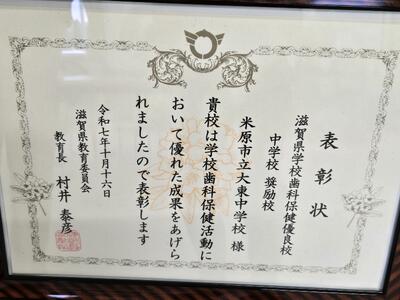 表彰状
滋賀県学校歯科保健優良校
中学校 奨励校
米原市立大東中学校 様
貴校は学校歯科保健活動に
おいて優れた成果をあげら
れましたので表彰します
令和七年十月十六日
滋賀県教育委員会
教育長 村井 泰彦